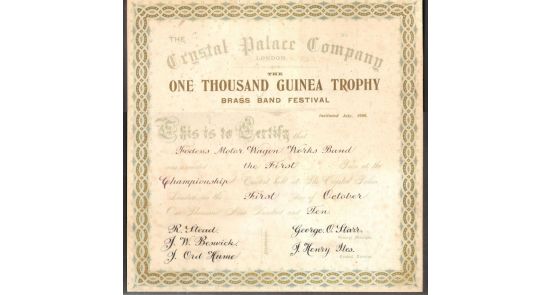 THE
Crystal Palace Company
LONDON
THE
ONE THOUSAND GUINEA TROPHY
BRASS BAND FESTIVAL
Instituted July, 1900.
This is to Certify that
Fodens Motor Wagon Works Band
was awarded the First Prize at the
Championship Contest held at The Crystal Palace
London on the First day of October
One Thousand Nine Hundred and Ten
R. Stead George O. Starr
J. W. Beswick J. Henry Iles.
J. Ord Hume